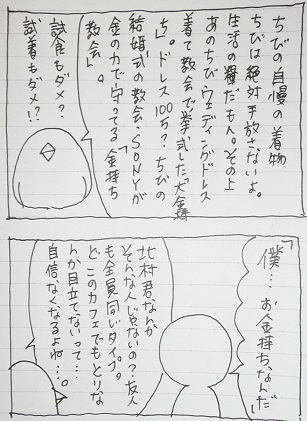 ちびの自慢の着物
ちびは絶対手放さないよ。
生活の糧だもん。その上
あのちびウェディングドレス
着て教会で挙式した「大金持
ち」。ドレス100万？ちびの
結婚式の教会、SONYが
金の力で守ってる「金持ち
教会」。
試食もダメ？
試着もダメ!?
「僕…お金持ちなんだ」
北村君なんか
そんな人じゃないの？友人
も全員同じタイプ。
どこのカフェでもとりな
んか目立てないって…
自信なくなるよね…。